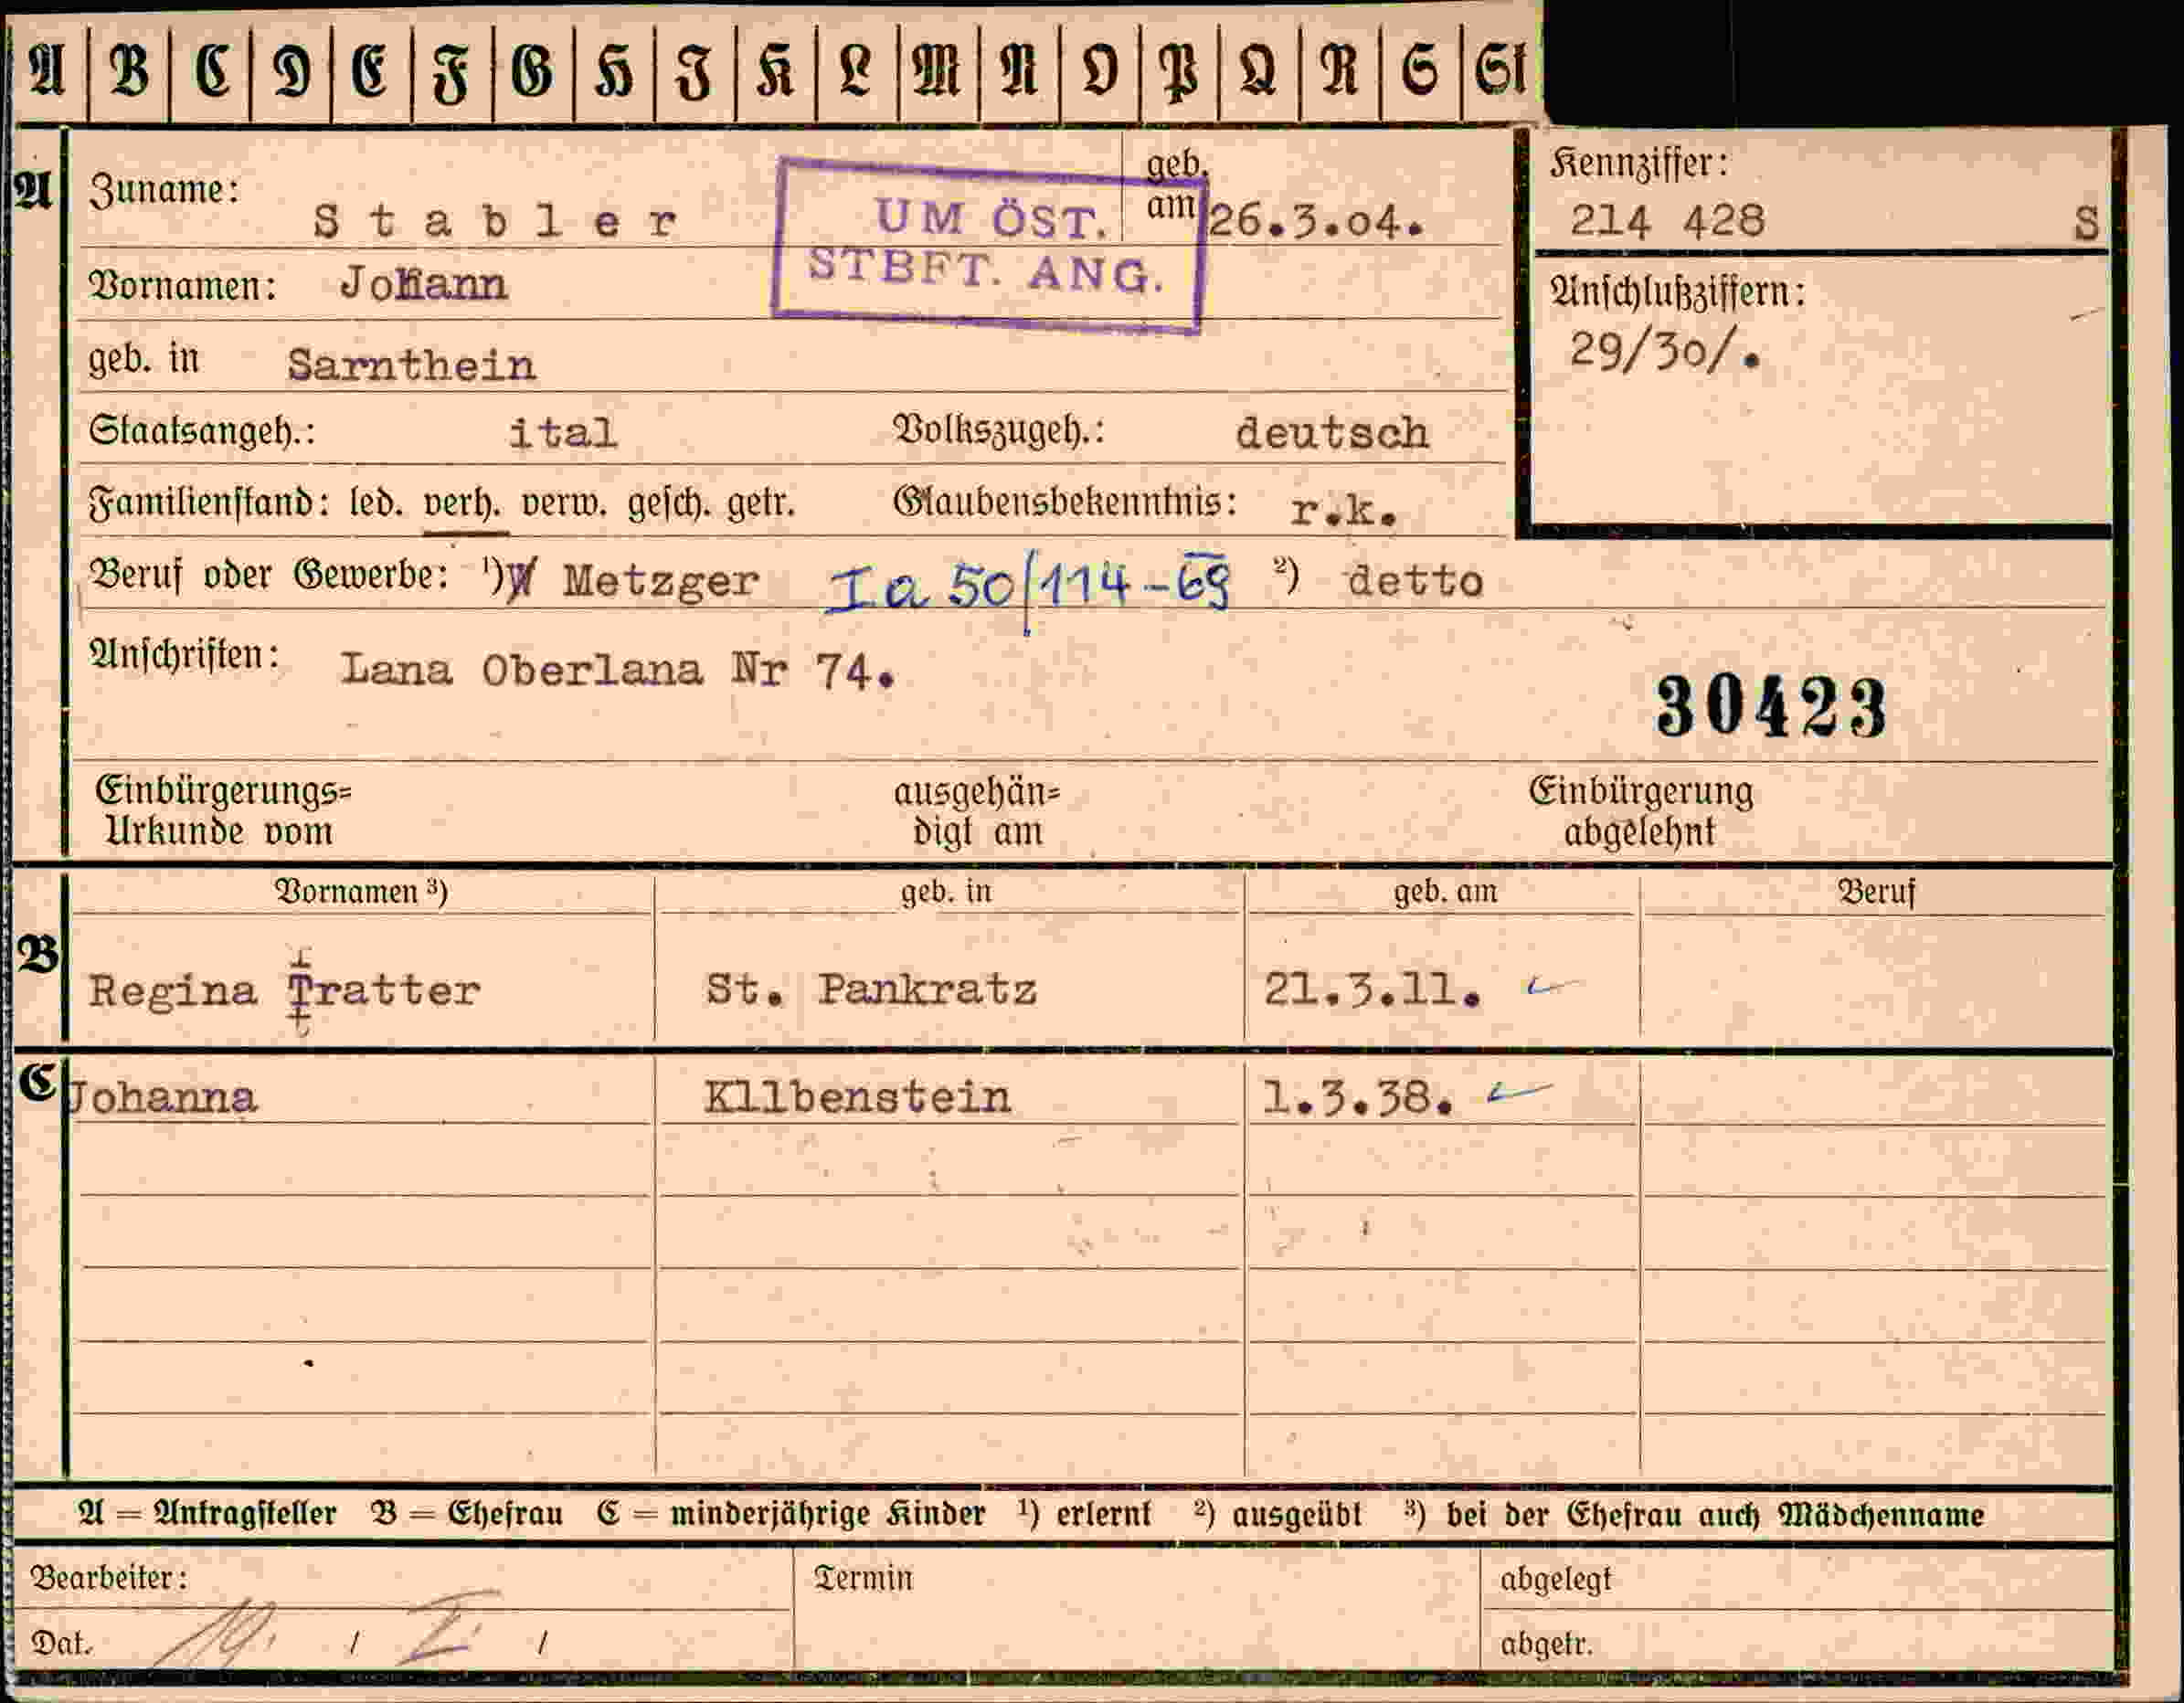 A B C D E F G H J K L M N O P Q R S St
A Zuname: Stabler geb. am 26.3.04.
UM ÖST.
STBFT. ANG.
Kennziffer:
214 428 S
Vornamen: Johann
Anschlußziffern:
29/30/.
geb. in Sarnthein
Staatsangeh.: ital Volkszugeh.: deutsch
Familienstand: led. verh. verw. gesch. getr. Glaubensbekenntnis: r.k.
Beruf oder Gewerbe: ¹) Metzger Ia 50/114-69 ²) detto
Anschriften: Lana Oberlana Nr 74.
30423
Einbürgerungs= ausgehän= Einbürgerung
Urkunde vom digt am abgelehnt
Vornamen ³) geb. in geb. am Beruf
B Regina Tratter St. Pankratz 21.3.11.
C Johanna Kllbenstein 1.3.38.
A = Antragsteller B = Ehefrau C = minderjährige Kinder ¹) erlernt ²) ausgeübt ³) bei der Ehefrau auch Mädchenname
Bearbeiter: Termin abgelegt
Dat. 19. / I / abgetr.